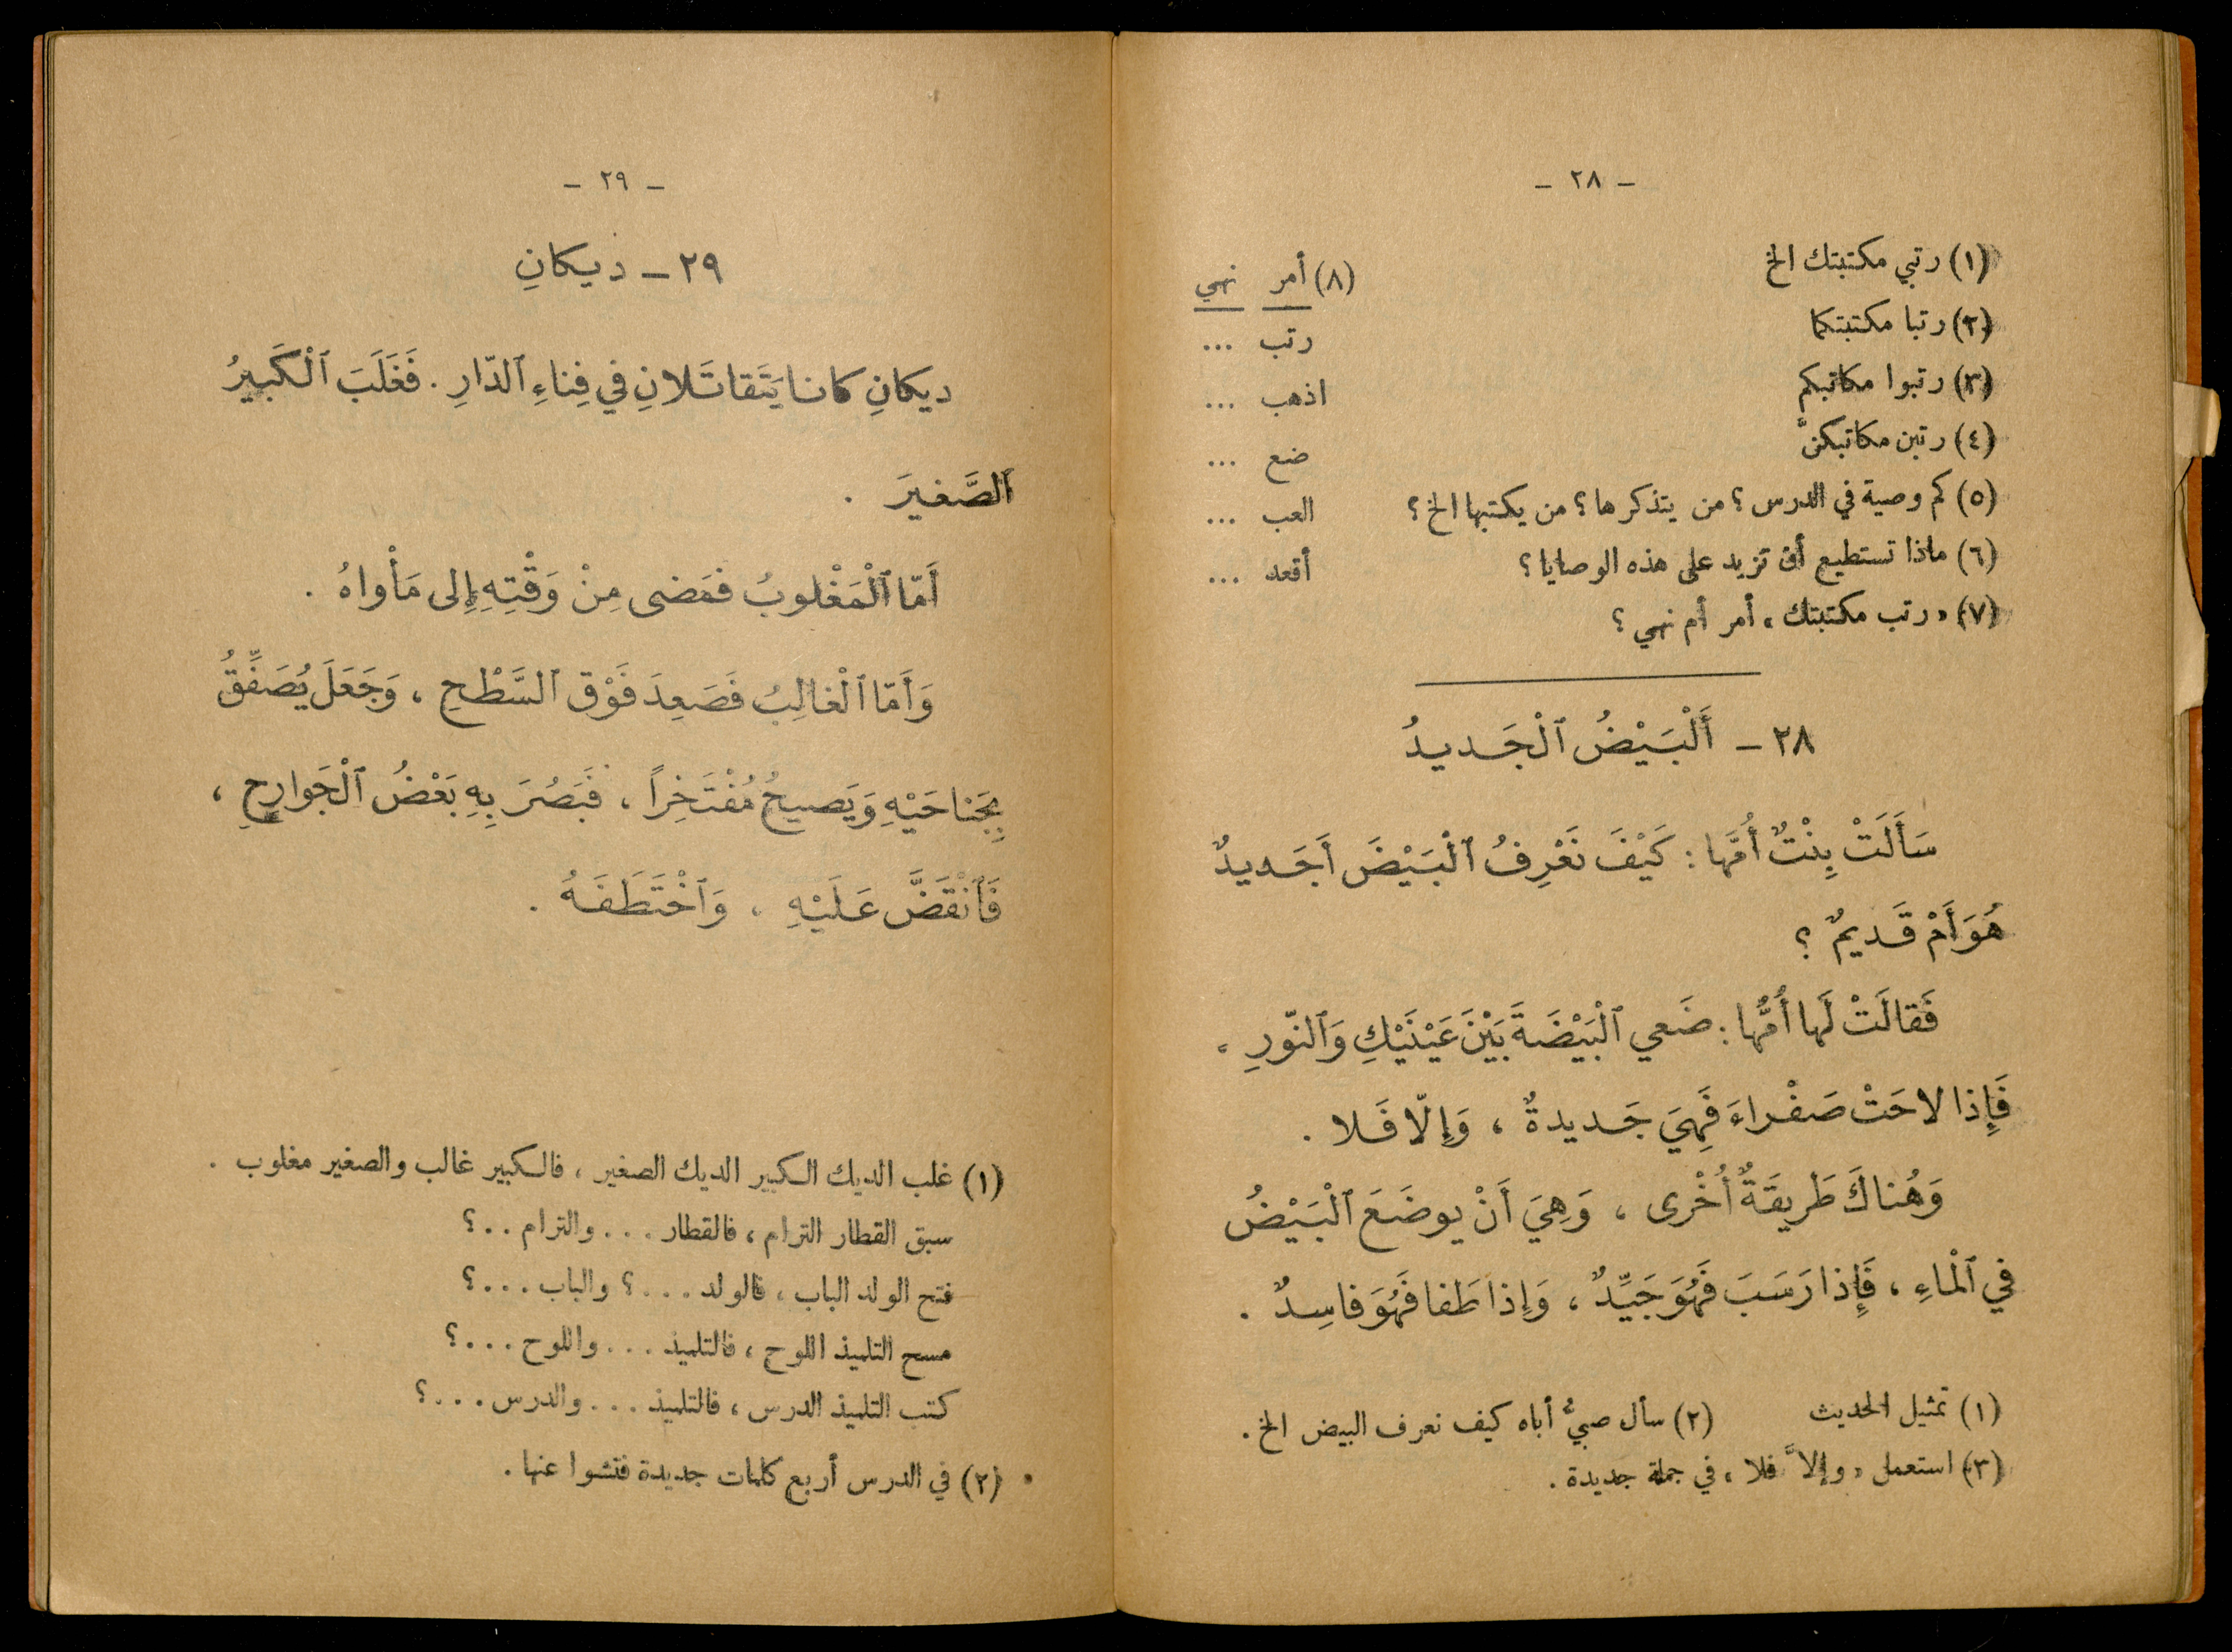 - ٢٨ -
(١) رتبي مكتبتك الخ
(٢) رتبا مكتبتكما
(٣) رتبوا مكاتبكم
(٤) رتبن مكاتبكنّ
(٥) كم وصية في الدرس ؟ من يتذكرها ؟ من يكتبها الخ ؟
(٦) ماذا تستطيع أن تزيد على هذه الوصايا ؟
(٧) « رتب مكتبتك » أمر أم نهي ؟
(٨) أمر نهي
رتب ...
اذهب ...
ضع ...
العب ...
أقعد ...
٢٨ - أَلْبَيْضُ ٱلْجَديدُ
سَأَلَتْ بِنْتٌ أُمَّها : كَيْفَ نَعْرِفُ ٱلْبَيْضَ أَجَديدٌ
هُوَ أَمْ قَديمٌ ؟
فَقالَتْ لَها أُمُّها : ضَعي ٱلْبَيْضَةَ بَيْنَ عَيْنَيْكِ وَٱلنّورِ ،
فَإِذا لاحَتْ صَفْراءَ فَهِيَ جَديدةٌ ، وَإِلّا فَلا .
وَهُناكَ طَريقَةٌ أُخْرى ، وَهِيَ أَنْ يوضَعَ ٱلْبَيْضُ
في ٱلْماءِ ، فَإِذا رَسَبَ فَهُوَ جَيِّدٌ ، وَإِذا طَفا فَهُوَ فاسِدٌ .
(١) تمثيل الحديث (٢) سأل صبيٌّ أباه كيف نعرف البيض الخ .
(٣) استعمل « وإلاَّ فلا » في جملة جديدة .
- ٢٩ -
٢٩ - ديكانِ
ديكانِ كانا يَتَقاتَلانِ في فِناءِ ٱلدّارِ . فَغَلَبَ ٱلْكَبيرُ
ٱلصَّغيرَ .
أَمّا ٱلْمَغْلوبُ فَمَضى مِنْ وَقْتِهِ إِلى مَأْواهُ .
وَأَمّا ٱلْغالِبُ فَصَعِدَ فَوْق ٱلسَّطْحِ ، وَجَعَلَ يُصَفِّقُ
بِجَناحَيْهِ وَيَصيحُ مُفْتَخِراً ، فَبَصُرَ بِهِ بَعْضُ ٱلْجَوارِحِ ،
فَٱنْقَضَّ عَلَيْهِ ، وَٱخْتَطَفَهُ .
(١) غلب الديك الكبير الديك الصغير ، فالكبير غالب والصغير مغلوب .
سبق القطار الترام ، فالقطار . . . والترام . . ؟
فتح الولد الباب ، فالولد . . . ؟ والباب . . . ؟
مسح التلميذ اللوح ، فالتلميذ . . . واللوح . . . ؟
كتب التلميذ الدرس ، فالتلميذ . . . والدرس . . . ؟
(٢) في الدرس أربع كلمات جديدة فتشوا عنها .